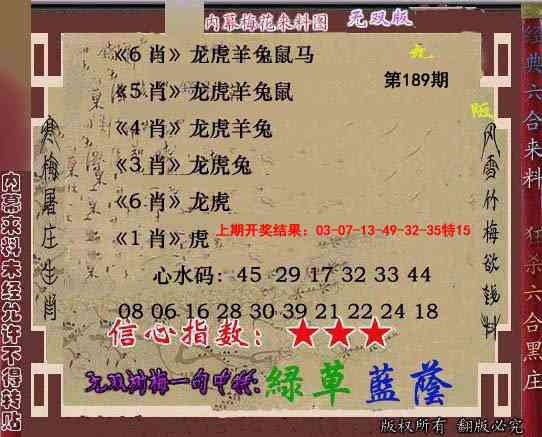 内幕梅花来料图 无双版
《6 肖》龙虎羊兔鼠马
无
第189期
《5 肖》龙虎羊兔鼠
版
《4 肖》龙虎羊兔
《3 肖》龙虎兔
《6 肖》龙虎
《1 肖》虎
上期开奖结果：03-07-13-49-32-35特15
心水码：45 29 17 32 33 44
08 06 16 28 30 39 21 22 24 18
信心指数：★★★
无双浏梅一句中特:綠草藍蔭
版权所有 翻版必究
寒梅屠庄生肖
风雪竹梅欲钱料
内幕来料未经允许不得转贴
经典六合来料
狂杀六合黑庄